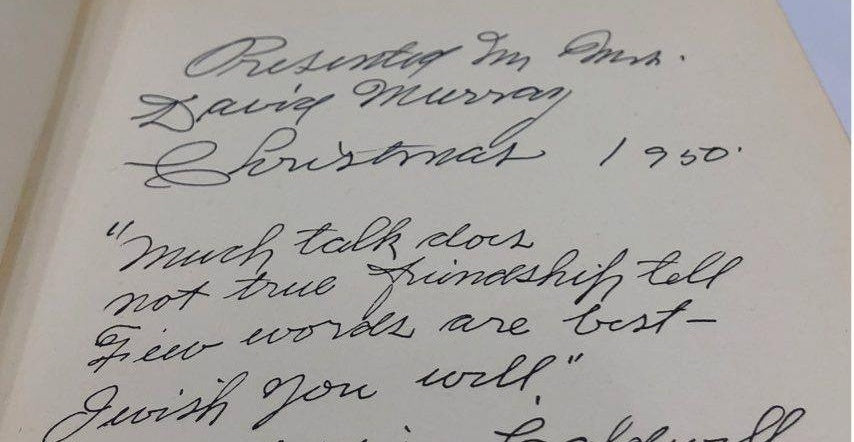 Presented Mr Mrs.
David Murray
Christmas 1950.
"Much talk does
not true friendship tell
Few words are best—
I wish you well."
Caldwell